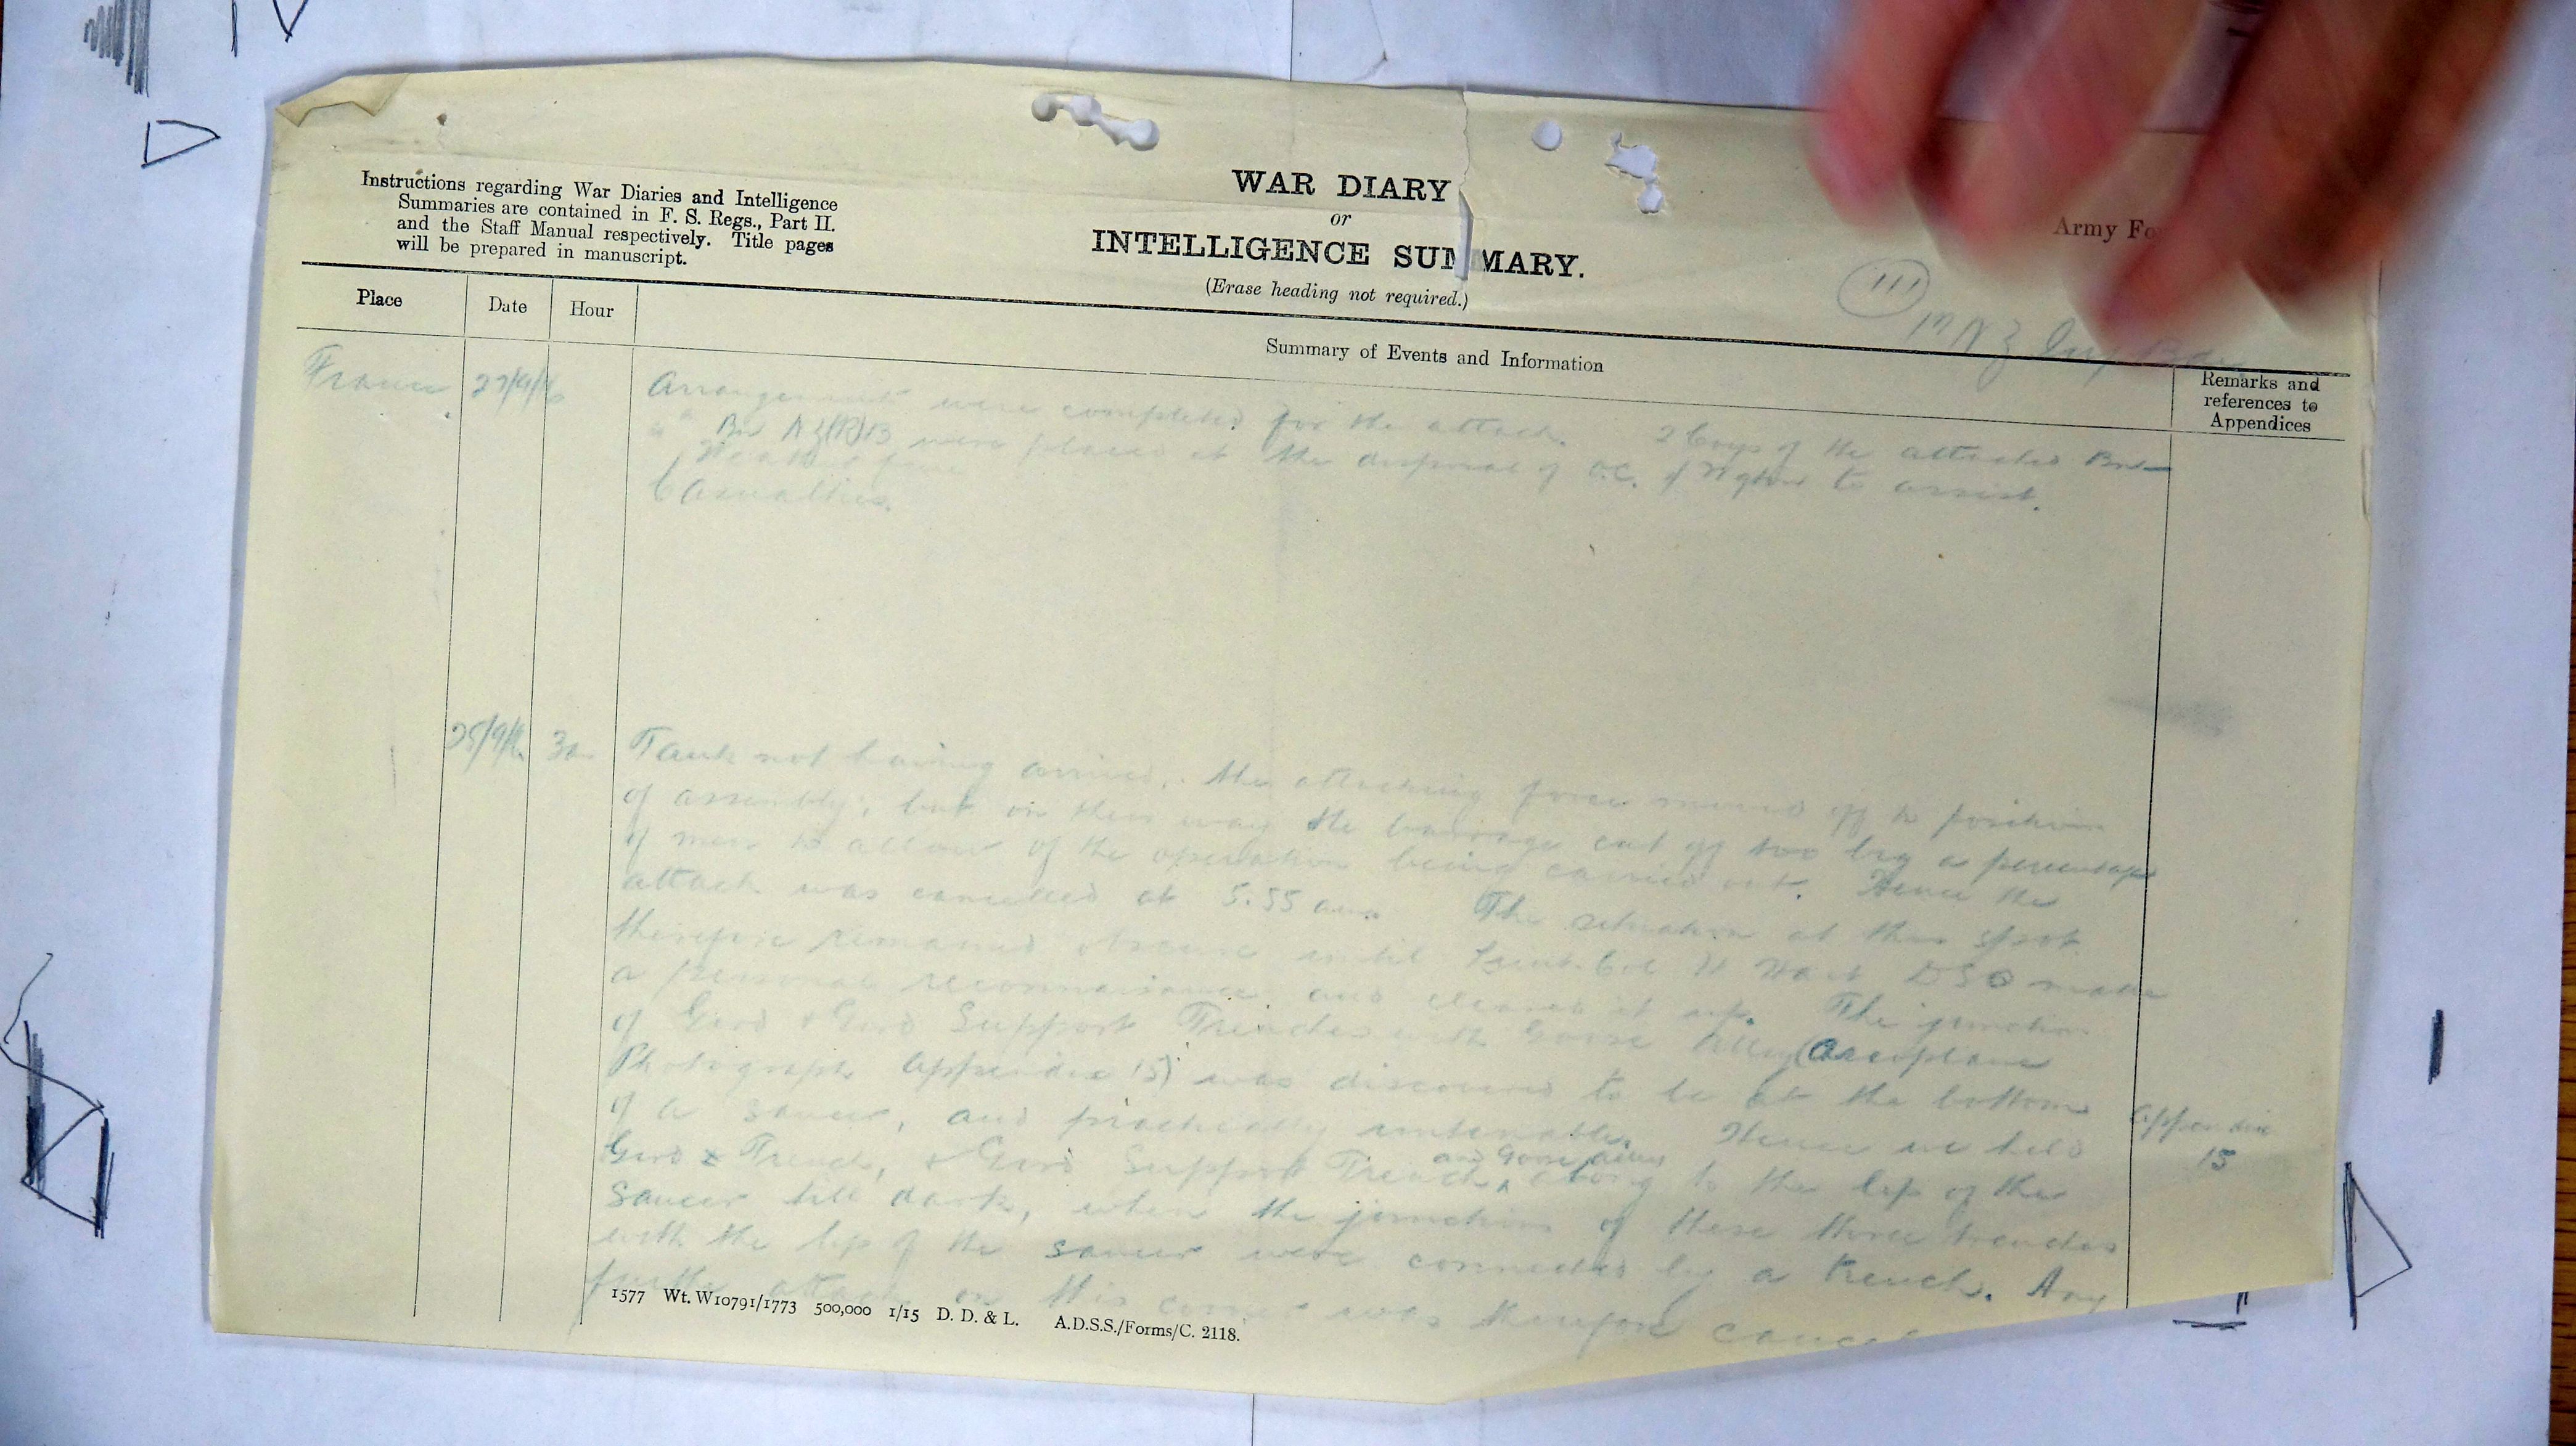 Instructions regarding War Diaries and Intelligence
Summaries are contained in F. S. Regs., Part II.
and the Staff Manual respectively. Title pages
will be prepared in manuscript.
WAR DIARY
or
INTELLIGENCE SUMMARY.
(Erase heading not required.)
Army Fo
111
NZ Inf
Place
Date
Hour
Summary of Events and Information
Remarks and
references to
Appendices
France 27/9/16 Arrangements were completed for the attack. 2 Coys of the attached Bn
Bn NZ(R)B were placed at the disposal of O.C. to assist.
Weather fine
Casualties.
28/9/16 3am Tank not having arrived, the attacking force moved off to position
of assembly, but on their way the barrage cut off too big a percentage
of men to allow of the operation being carried out. Hence the
attack was cancelled at 5.55 am. The situation at this spot
therefore remained obscure until Lieut. Col H Hart DSO made
a personal reconnaissance and cleared it up. The junction
of Gird & Gird Support Trenches with Goose Alley (Aeroplane
Photograph Appendix 15) was discovered to be at the bottom
of a saucer, and practically untenable. Hence we held
Appendix
15
Gird Trench, & Gird Support Trench, and Goose Alley along to the lip of the
saucer till dark, when the junction of these three trenches
with the lip of the saucer were connected by a trench. Any
further attack on this corner was therefore
1577 Wt. W10791/1773 500,000 1/15 D. D. & L. A.D.S.S./Forms/C. 2118.